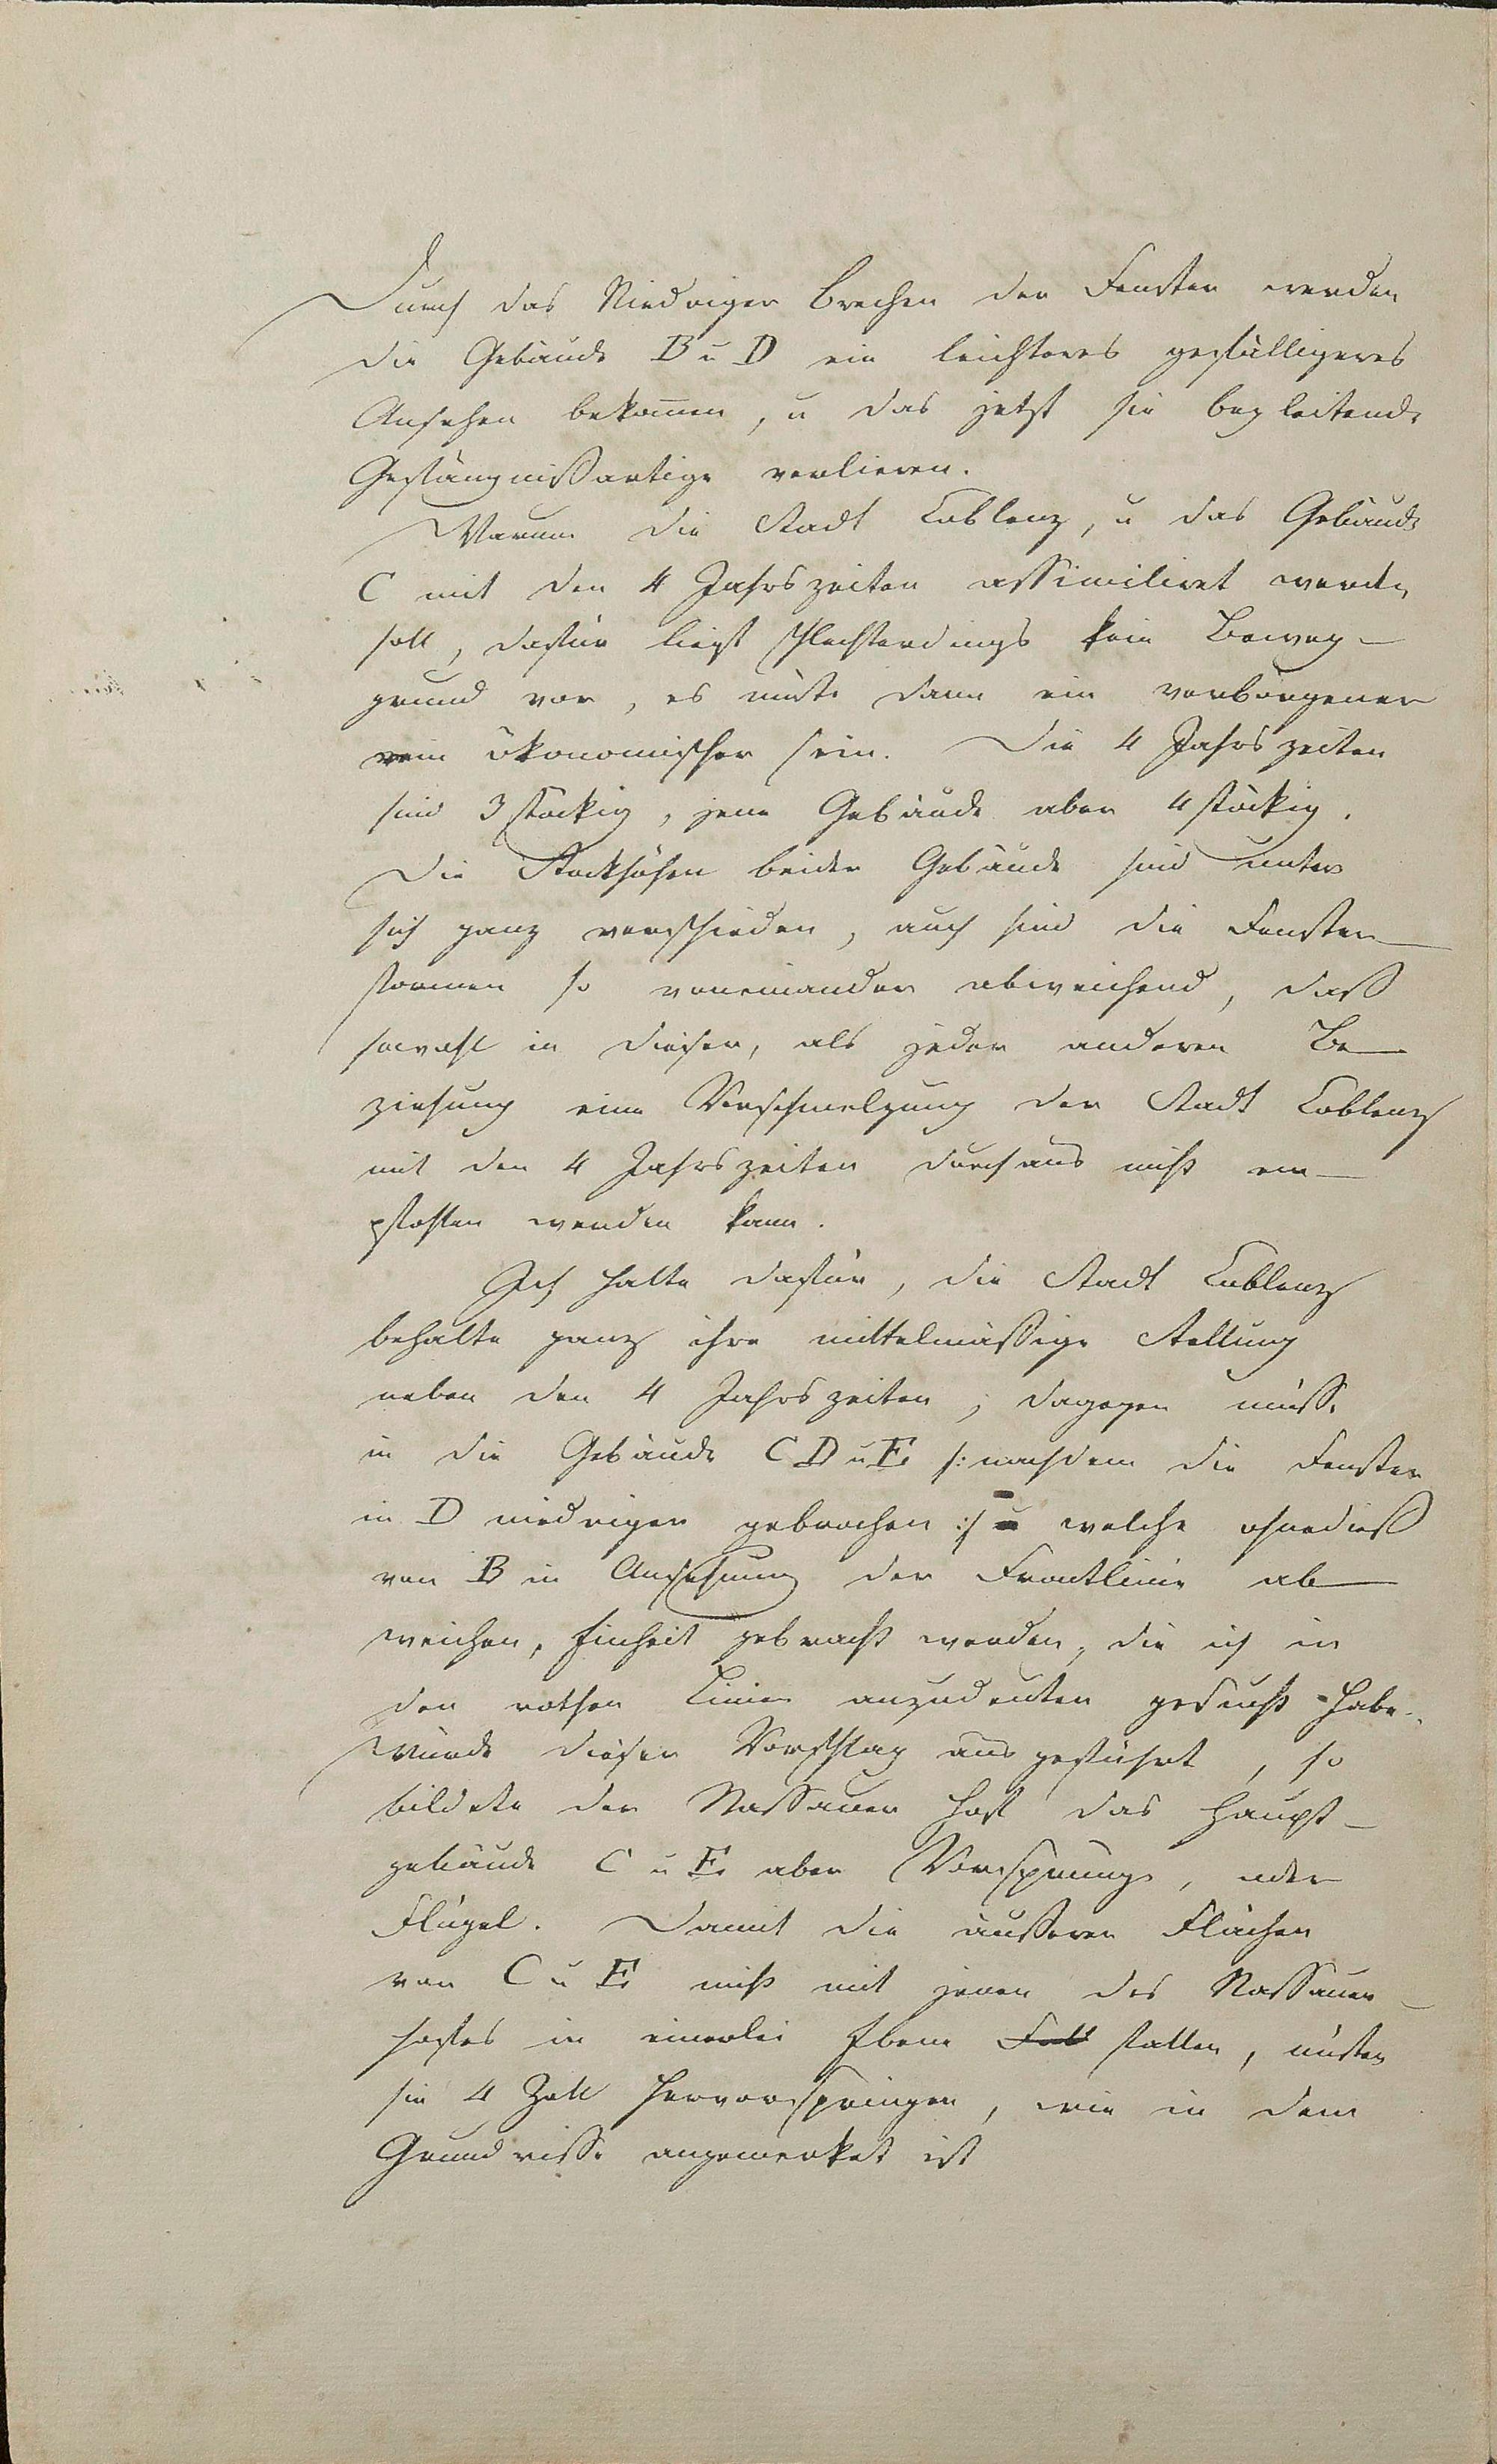 Durch das Niedriger brechen der Fenster werden
die Gebäude B u D ein leichteres gefälligeres
Ansehen bekom̄en, u das jetzt sie begleitende
Gefängnißartige verlieren.
Warum die Stadt Coblenz, u das Gebäude
C mit den 4 Jahrszeiten assimiliret werden
soll, dafür liegt schlechterdings kein Beweg-
grund vor, es müste dann ein verborgener
rein ökonomischer sein. Die 4 Jahrszeiten
sind 3 stöckig, jene Gebäude aber 4 stöckig.
Die Stockhöhen beider Gebäude sind unter
sich ganz verschieden, auch sind die Fenster-
formen so voneinander abweichend, daß
sowohl in dieser, als jeder anderen Be-
ziehung eine Verschmelzung der Stadt Coblenz
mit den 4 Jahrszeiten durchaus nicht em-
pfohlen werden kann.
Ich halte dafür, die Stadt Coblenz
behalte ganz ihre mittelmäßige Stellung
neben den 4 Jahrszeiten; dagegen müsse
in die Gebäude C D u E /: nachdem die Fenster
in D niedriger gebrochen :/ welche ohnedieß
von B in Ansehung der Frontlinie ab-
weichen, Einheit gebracht werden, die ich in
den rothen Linien anzudeuten gesucht habe.
Würde dieser Vorschlag ausgeführt, so
bildete der Nassauer Hof das Haupt-
gebäude C u E aber Vorsprünge, oder
Flügel. Damit die äußeren Flächen
von C u E nicht mit jenen des Nassauer-
hofes in einerlei Ebene Fall fallen, müsten
sie 4 Zoll hervorspringen, wie in dem
Grundrisse angemerket ist